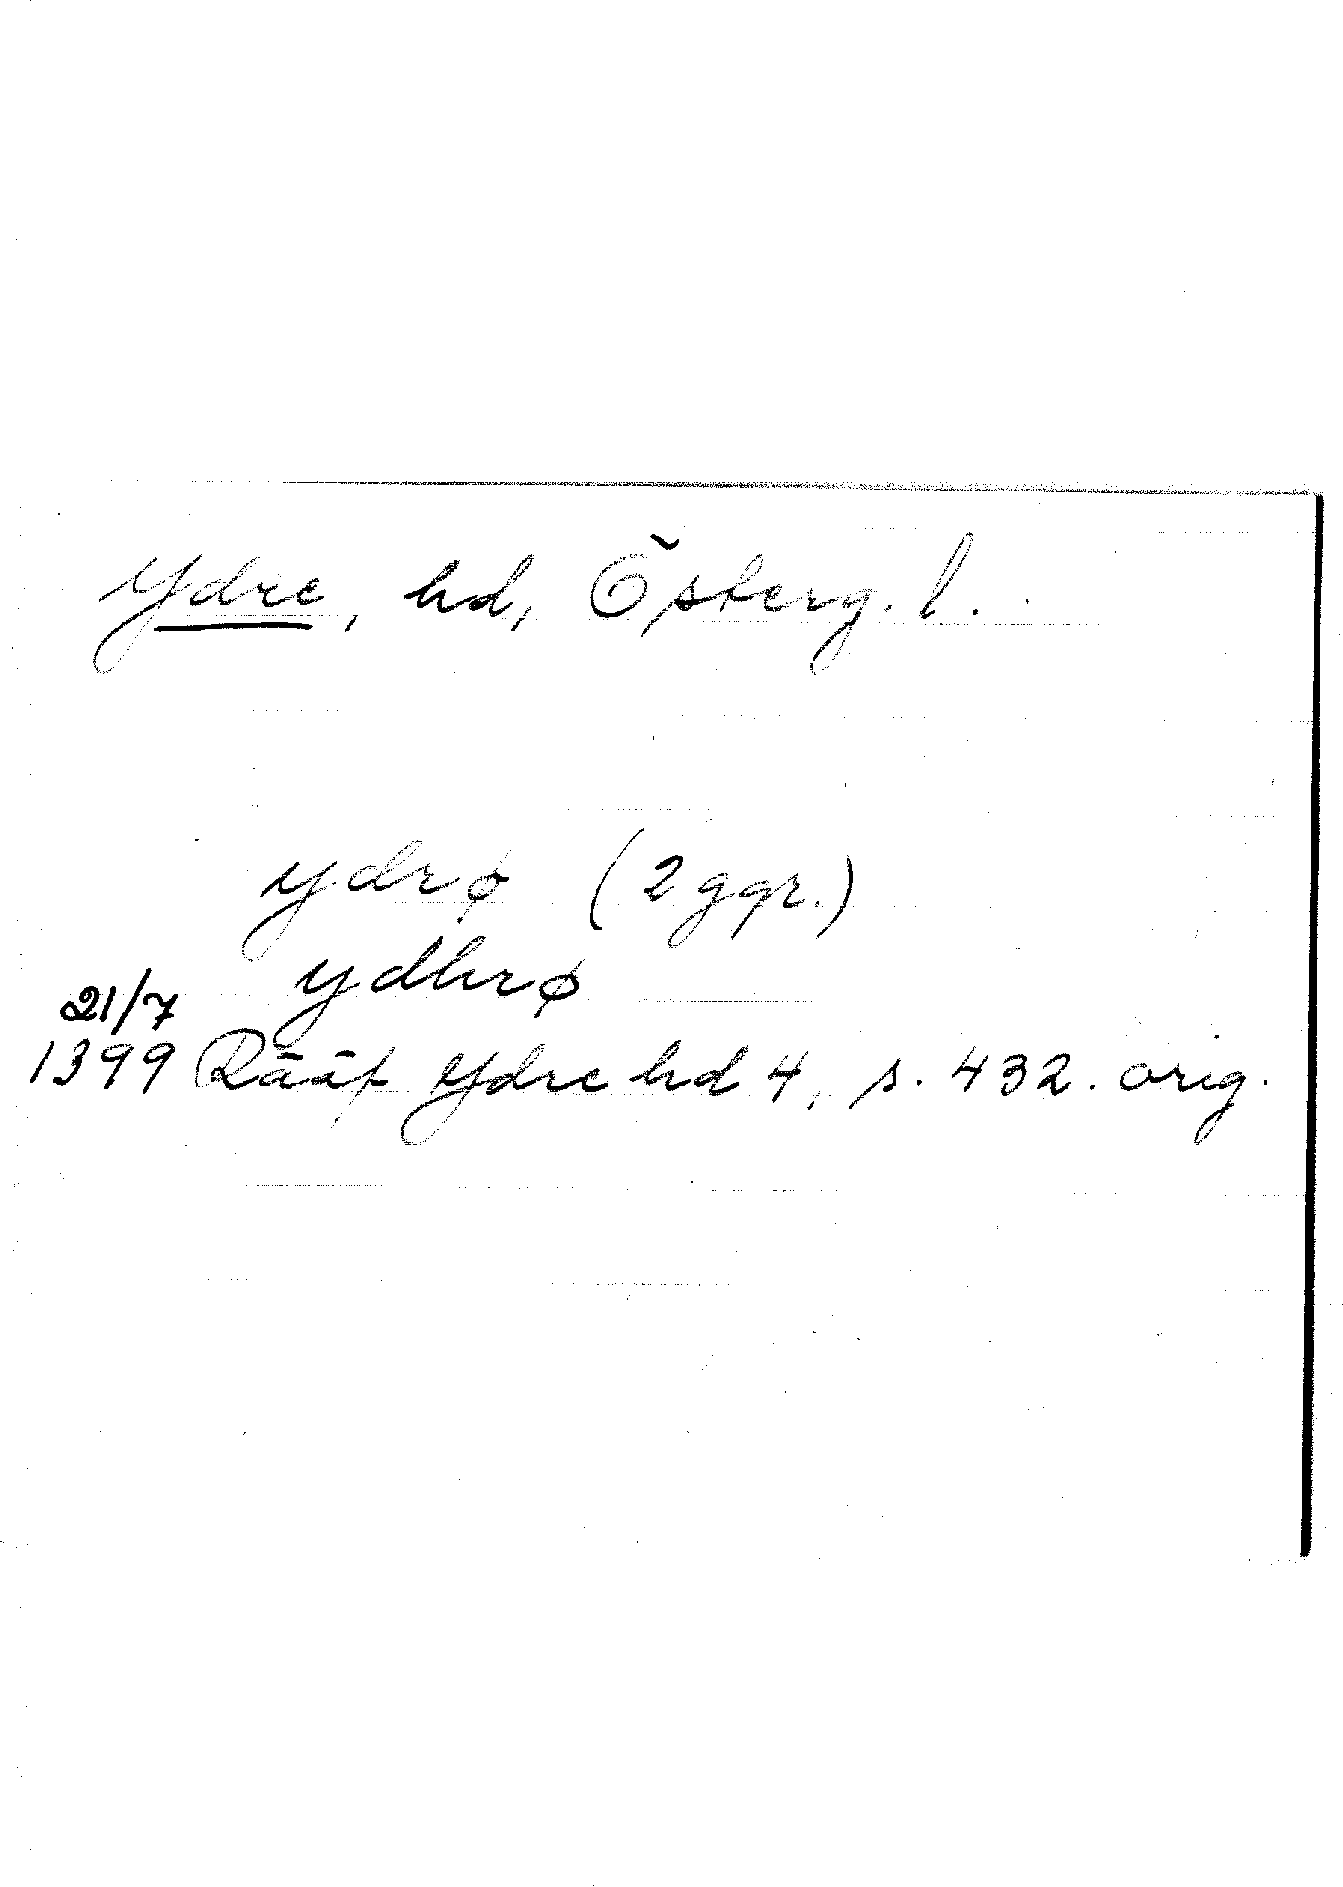 Ydre, hd, Österg. l.
ydrø (2 ggr.)
ydhrø
21/7
1399 Rääf Ydre hd 4, s. 432. orig.